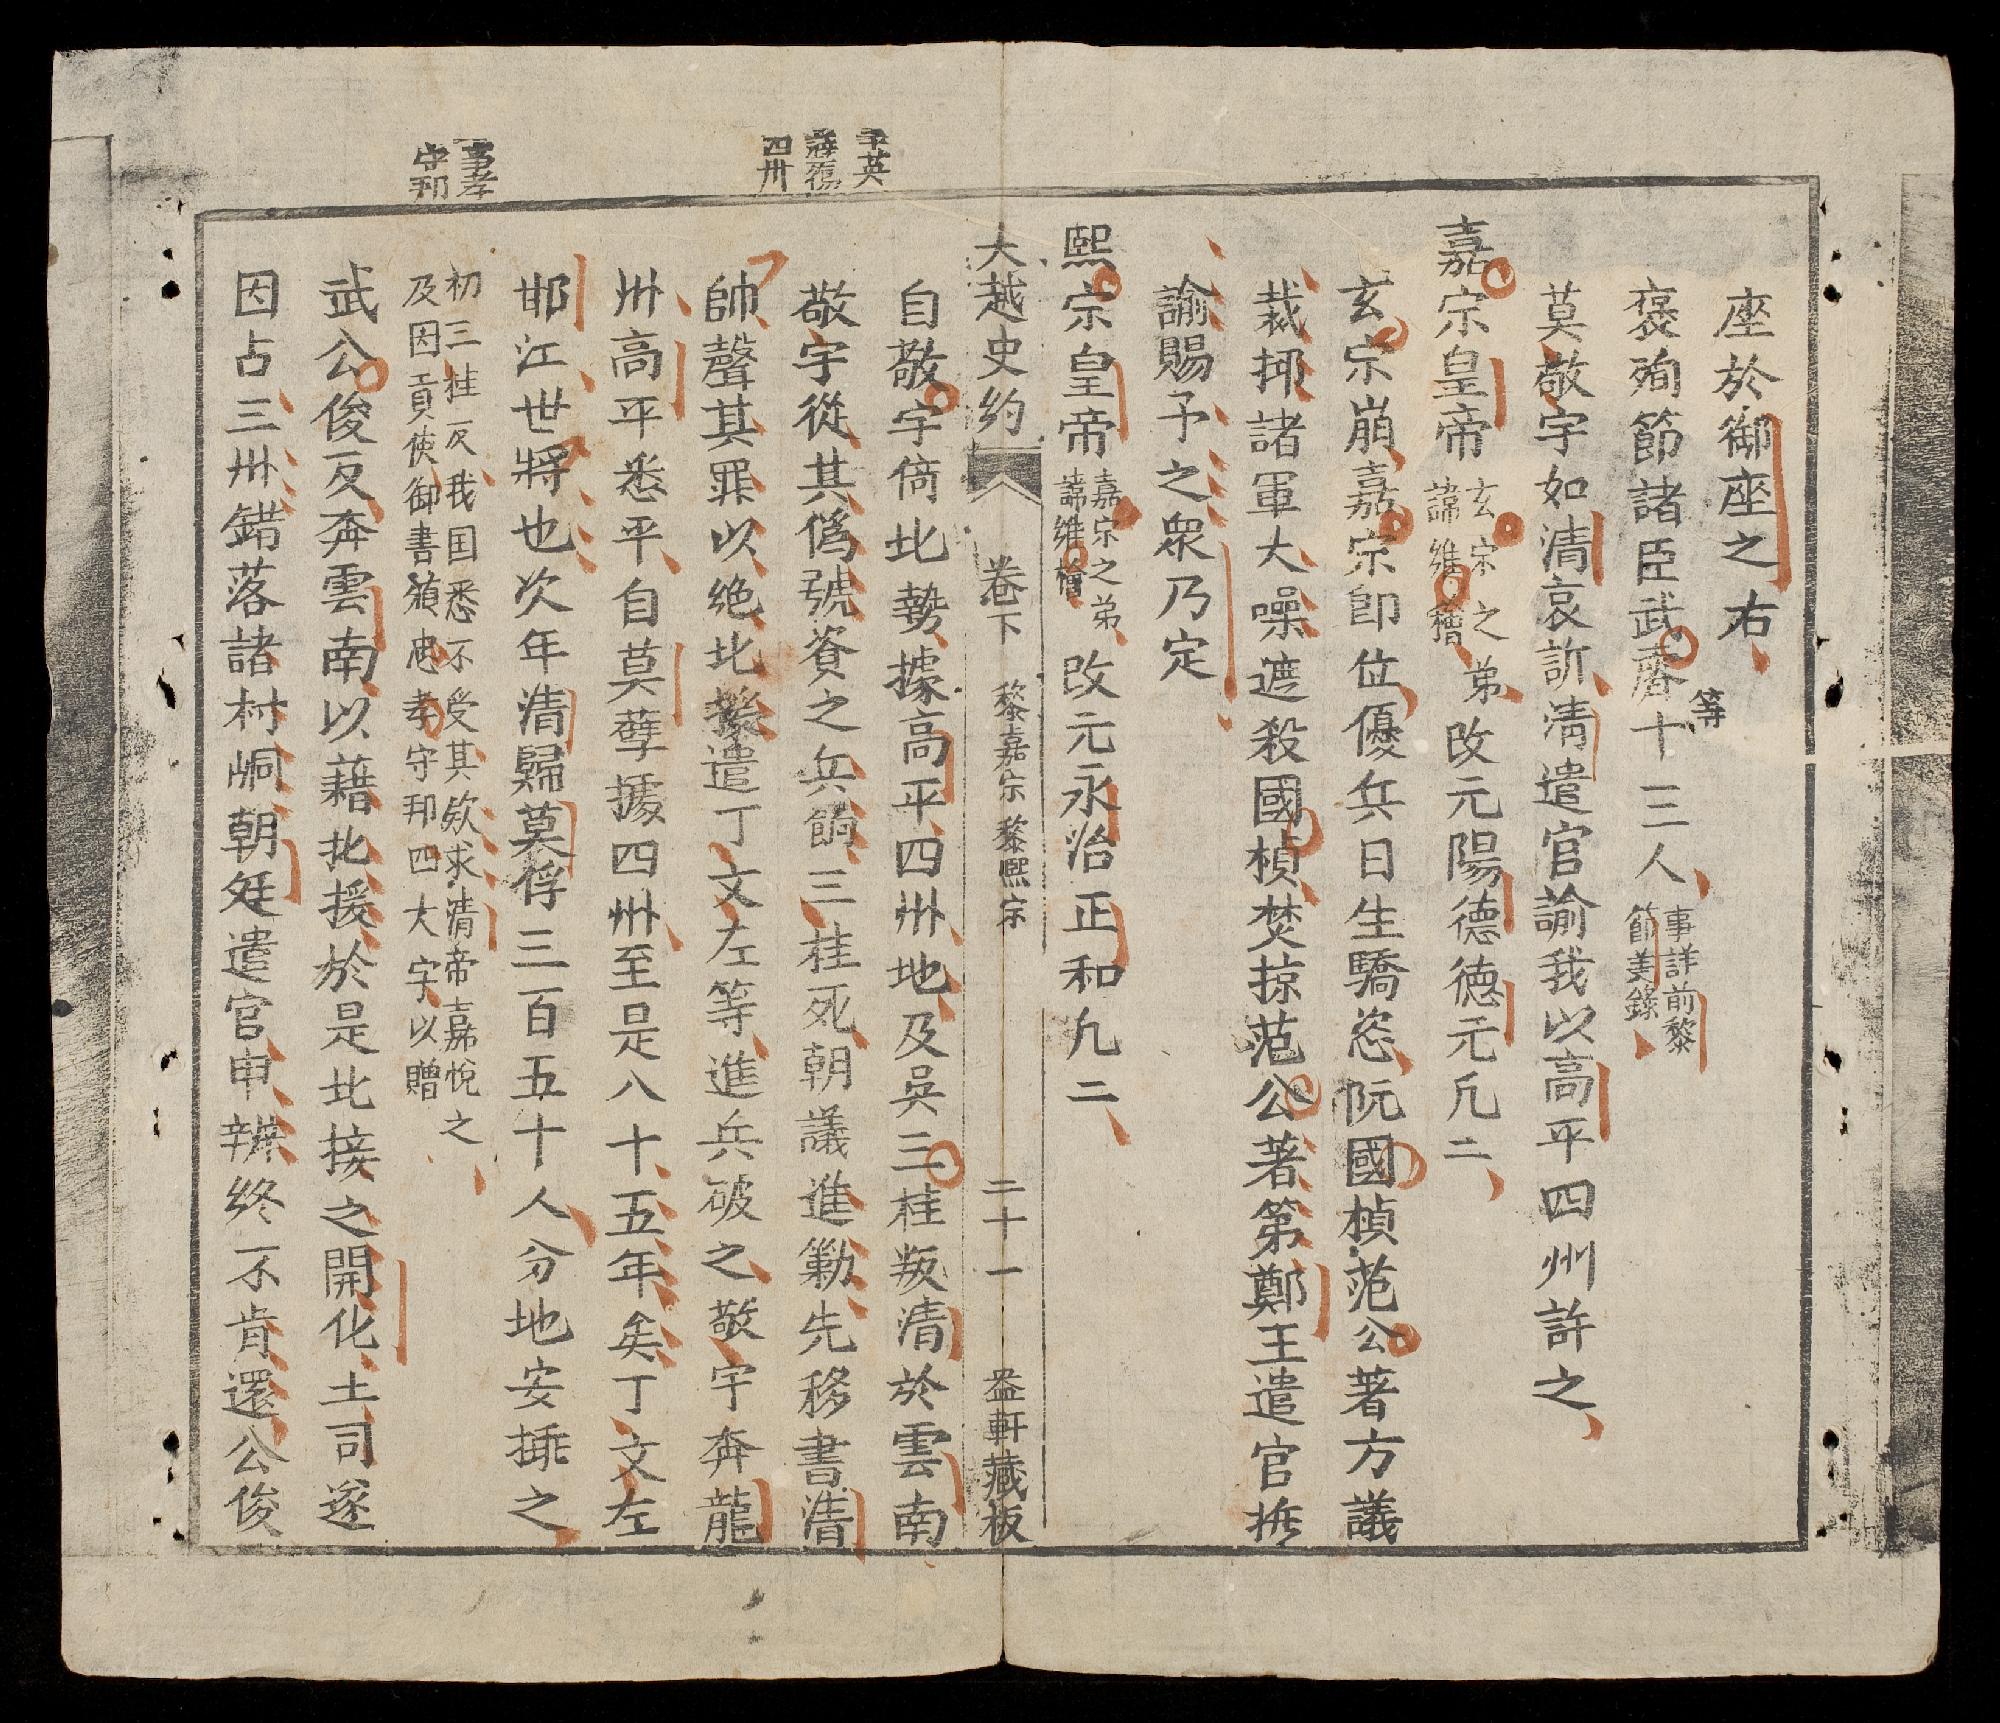 座於御座之右
褒殉節諸臣武睿等十三人 事詳前黎
節義錄
莫敬宇如清哀訢清遣官諭我以高平四州許之
嘉宗皇帝 玄宗之弟
諱維禬 改元陽德德元凡二
玄宗崩嘉宗即位優兵日生驕恣阮國楨范公著方議
裁抑諸軍大噪遮殺國楨焚掠范公著第鄭王遣官撫
諭賜予之衆乃定
熙宗皇帝 嘉宗之弟
諱維禬 改元永治正和凡二
大越史約 卷下 黎嘉宗 黎熙宗 二十一 益軒藏板
英
復
四州
自敬宇倚北勢據高平四州地及吳三桂叛清於雲南
敬宇從其僞號資之兵餉三桂死朝議進勦先移書清
帥聲其罪以絶北援遣丁文左等進兵破之敬宇奔龍
州高平悉平自莫孽據四州至是八十五年矣丁文左
邯江世將也次年清歸莫俘三百五十人分地安揷之
事孝
守邦
初三桂反我国悉不受其欸求清帝嘉悅之
及因貢使御書頒忠孝守邦四大字以贈
武公俊反奔雲南以藉北援於是北接之開化土司遂
因占三州錯落諸村峒朝廷遣官申辨終不肯還公俊